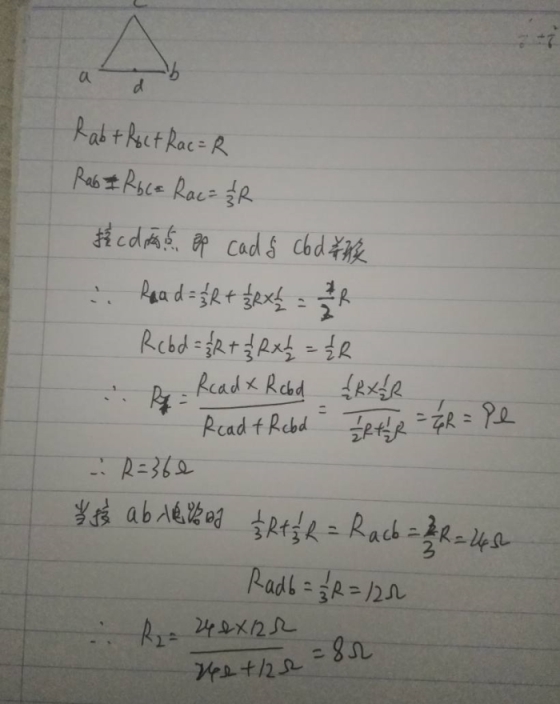 c
a
b
d
Rab+Rbc+Rac=R
Rab=Rbc=Rac=⅓R
接cd两点 即 cad与cbd并联
∴ Rcad=⅓R+⅓R×½=½R
Rcbd=⅓R+⅓R×½=½R
∴ R₁=(Rcad×Rcbd)/(Rcad+Rcbd)=(½R×½R)/(½R+½R)=¼R=9Ω
∴ R=36Ω
当接ab入电路时 ⅓R+⅓R=Racb=⅔R=24Ω
Radb=⅓R=12Ω
∴ R₂=(24Ω×12Ω)/(24Ω+12Ω)=8Ω